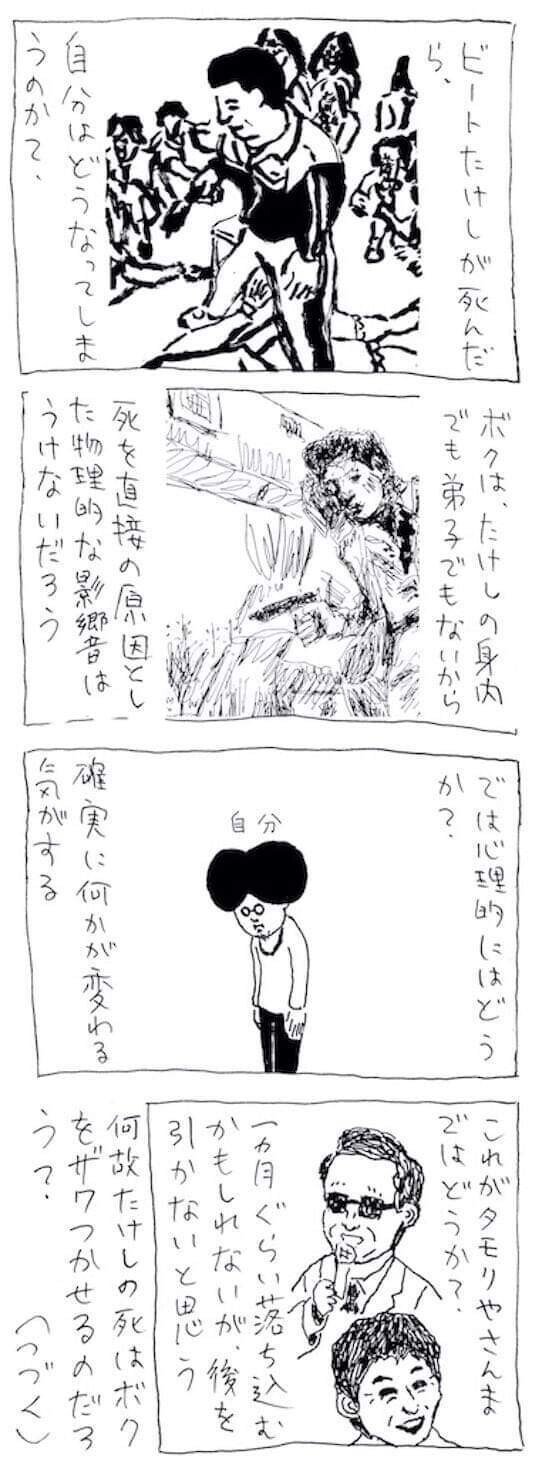 ビートたけしが死んだ
ら、
自分はどうなってしま
うのか？、
ボクは、たけしの身内
でも弟子でもないから
死を直接の原因とし
た物理的な影響は
うけないだろう
では心理的にはどう
か？、
自分
確実に何かが変わる
気がする
これがタモリやさんま
ではどうか？、
一ヵ月ぐらい落ち込む
かもしれないが、後を
引かないと思う
何故たけしの死はボク
をザワつかせるのだろ
う？、
（つづく）